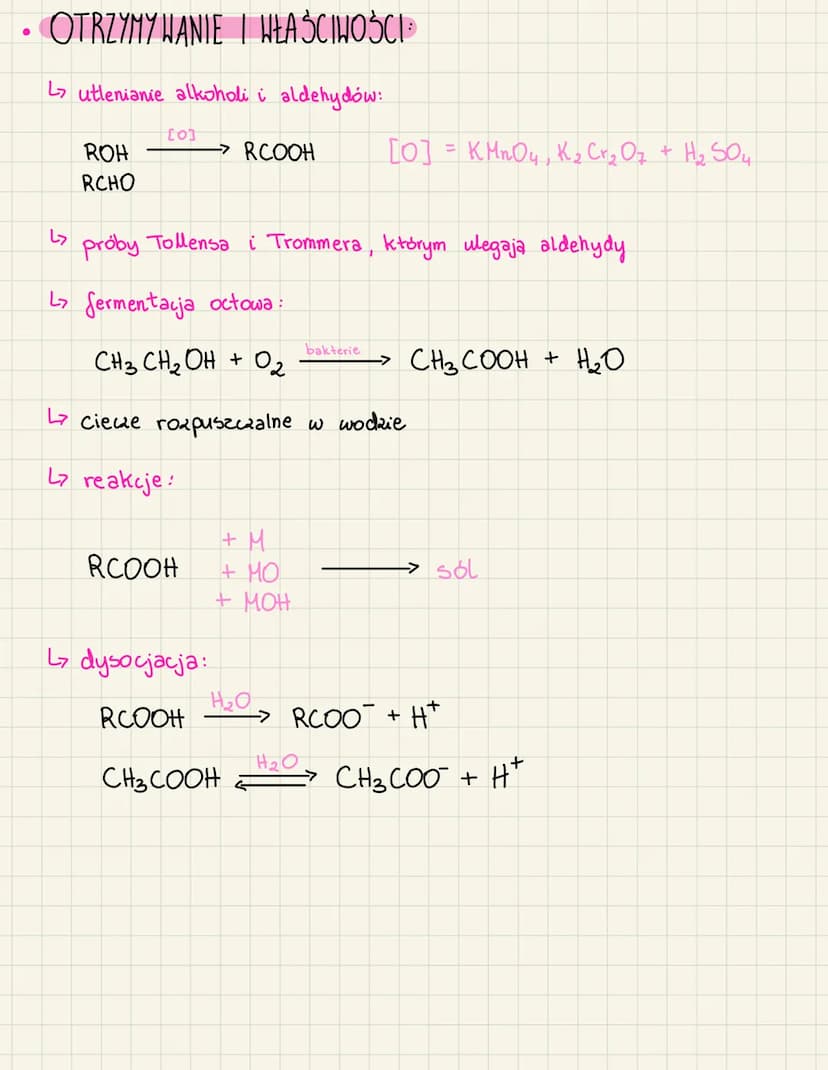 • OTRZYMYWANIE I WŁAŚCIWOŚCI:
↳ utlenianie alkoholi i aldehydów:
ROH [O] → RCOOH [O] = KMnO₄, K₂Cr₂O₇ + H₂SO₄
RCHO
↳ próby Tollensa i Trommera, którym ulegają aldehydy
↳ fermentacja octowa:
CH₃CH₂OH + O₂ bakterie → CH₃COOH + H₂O
↳ ciecze rozpuszczalne w wodzie
↳ reakcje:
+ M
RCOOH + MO → sól
+ MOH
↳ dysocjacja:
RCOOH H₂O → RCOO⁻ + H⁺
CH₃COOH H₂O ⇌ CH₃COO⁻ + H⁺